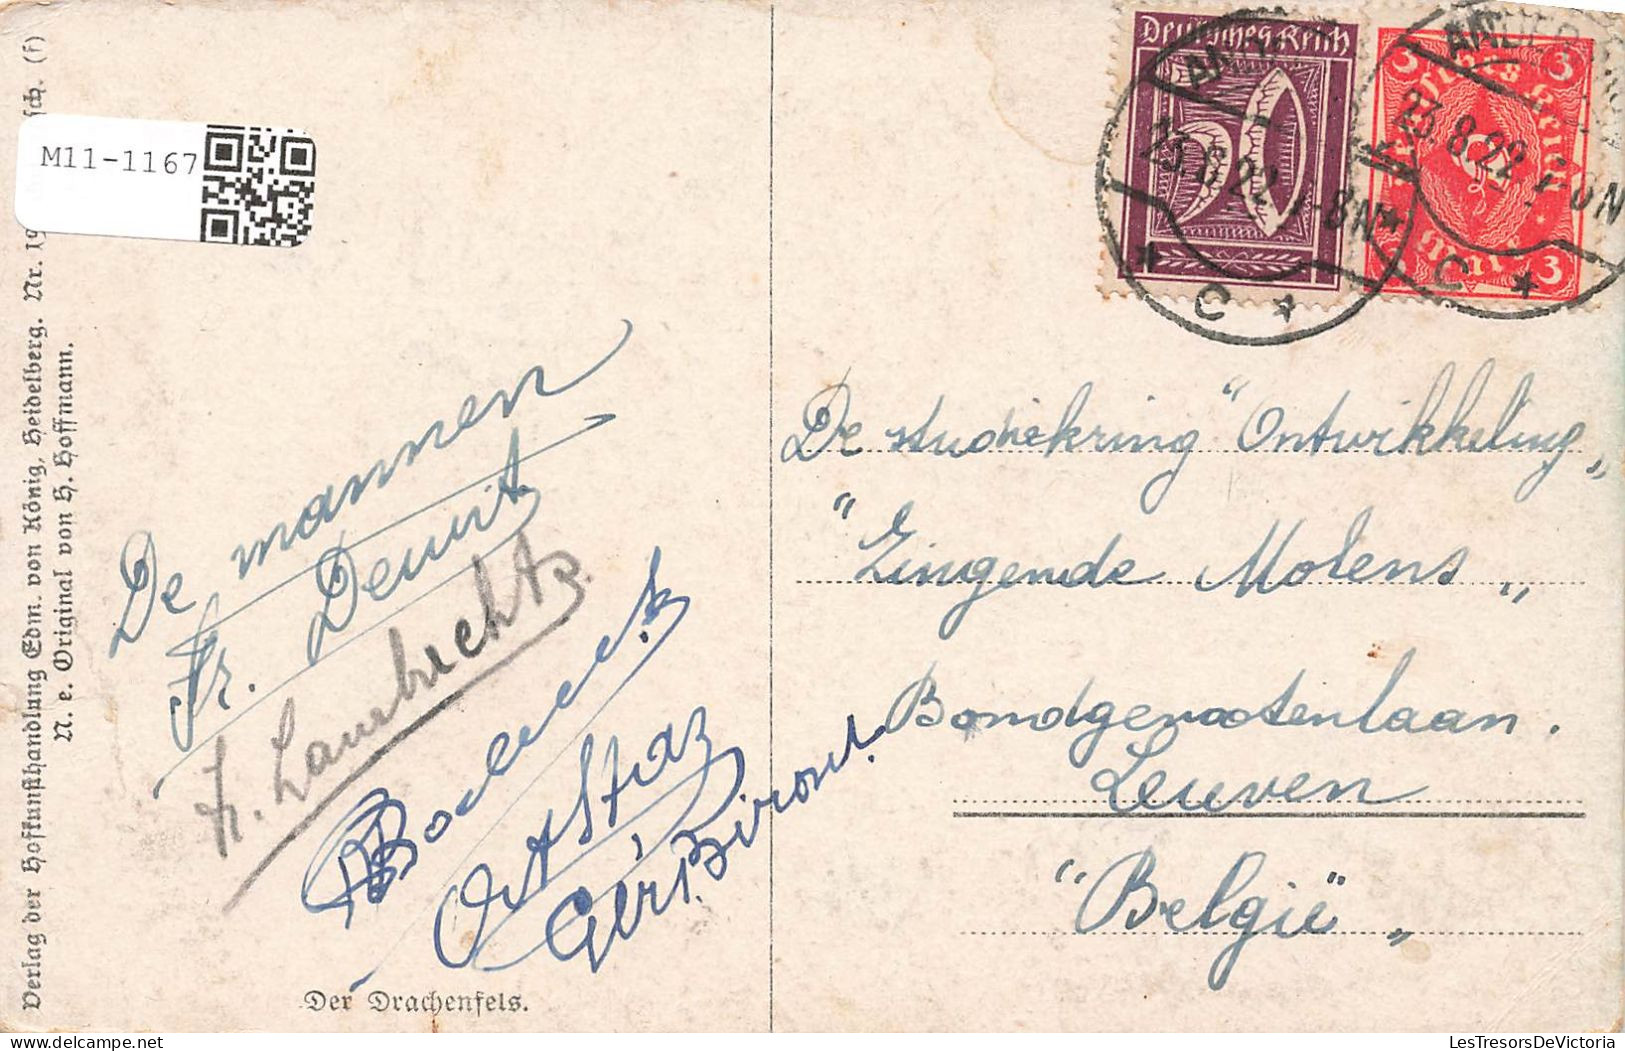 M11-1167
Verlag der Hofkunsthandlung Edm. von König, Heidelberg. Nr. 19 sch. (f)
N. e. Original von H. Hoffmann.
De mannen
Fr. Dewit
Fr. Lambrechts.
Der Drachenfels.
Deutsches Reich
50
3 3
Deutsches Reich
Mark
3
23.8.22. 7-8N
C
23.8.22. 7-8N
C
De studiekring "Ontwikkeling„
"Zingende Molens„
Bondgenootenlaan.
Leuven
"België„
LesTresorsDeVictoria
delcampe.net